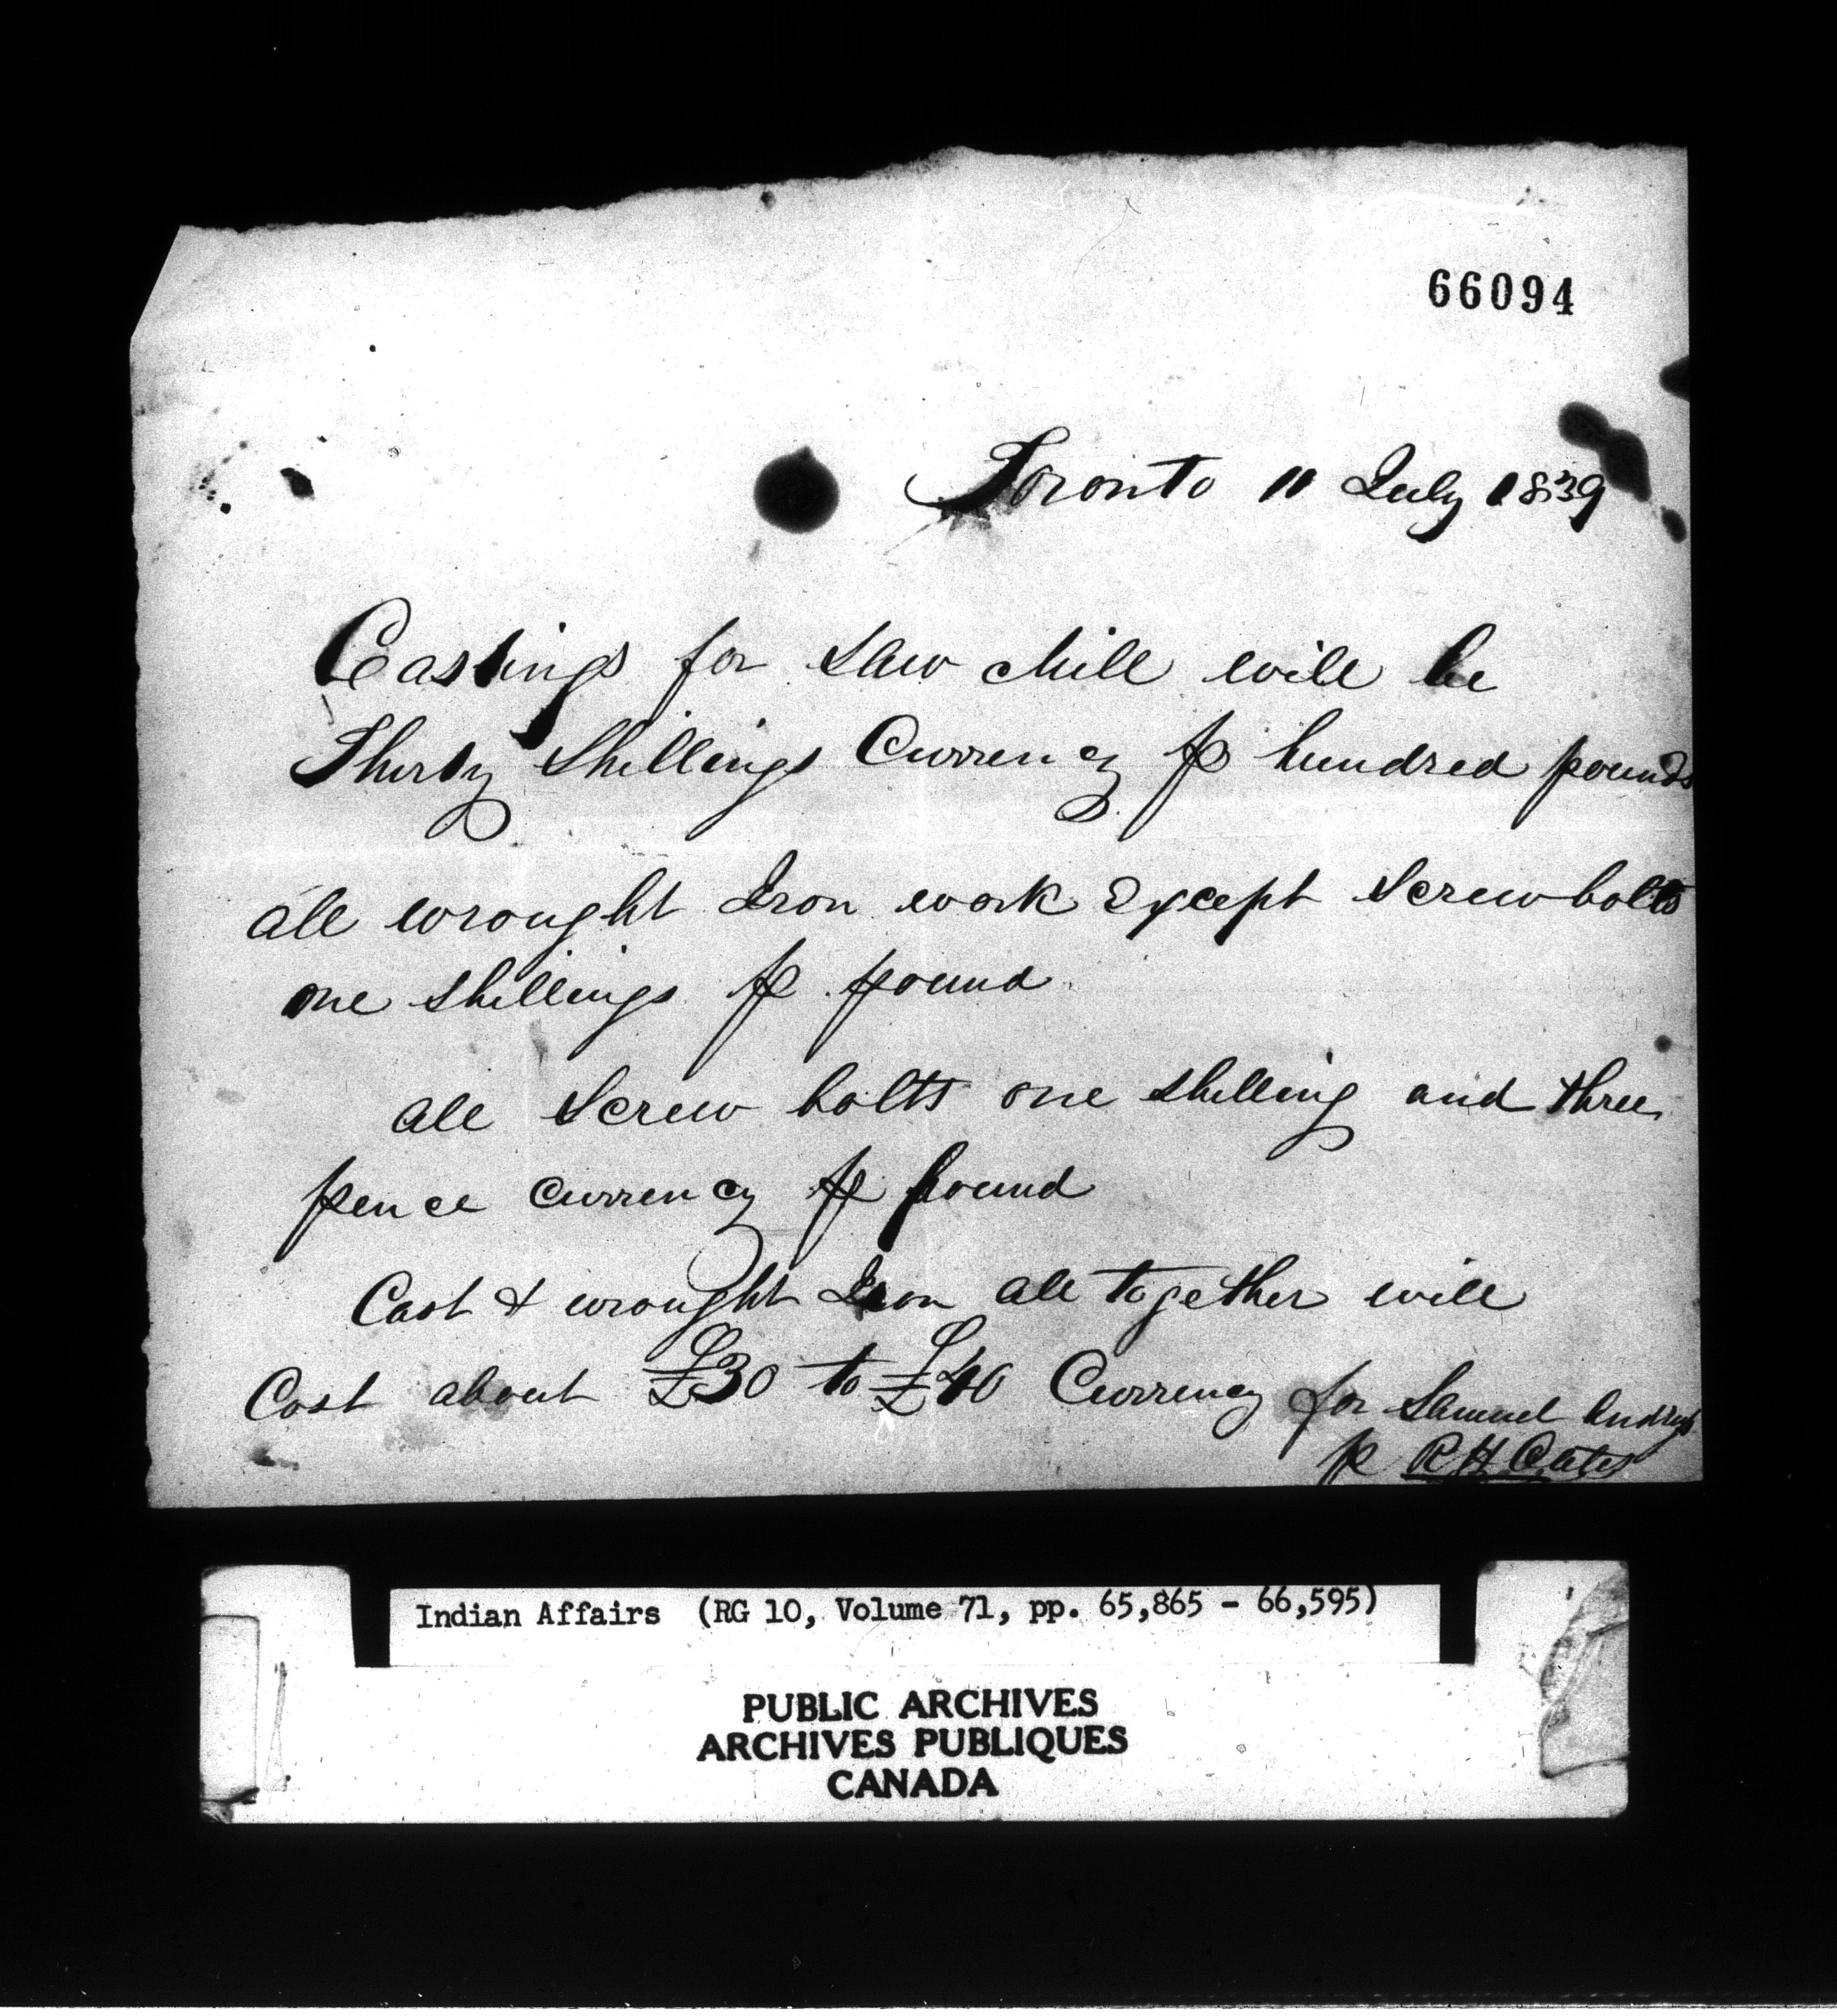 66094
Toronto 11 July 1839
Castings for Saw Mill will be
Thirty Shillings Currency p hundred pounds
all wrought Iron work Except Screw bolts
one shillings p pound
all Screw bolts one shilling and three
pence currency p pound
Cast & wrought Iron all together will
Cost about £30 to £40 Currency for Samuel
p R H Oates
Indian Affairs (RG 10, Volume 71, pp. 65,865 - 66,595)
PUBLIC ARCHIVES
ARCHIVES PUBLIQUES
CANADA